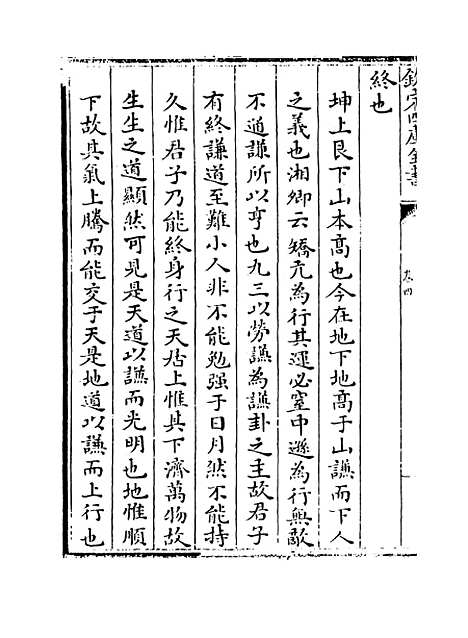 欽定四庫全書
卷四
終也
坤上艮下山本髙也今在地下地髙于山謙而下人
之義也湘卿云矯亢為行其運必窒中遜為行無敵
不通謙所以亨也九三以勞謙為謙卦之主故君子
有終謙道至難小人非不能勉强于日月然不能持
久惟君子乃能終身行之天居上惟其下濟萬物故
生生之道顯然可見是天道以謙而光明也地惟順
下故其氣上騰而能交于天是地道以謙而上行也